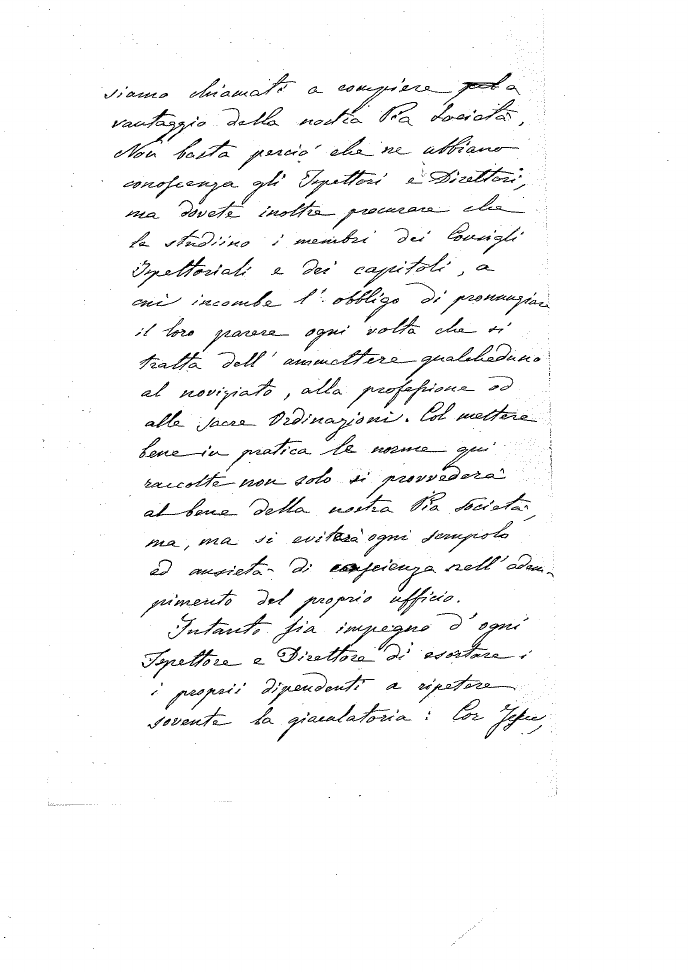 siamo chiamati a compiere a
vantaggio della nostra Pia Società.
Non basta perciò che ne abbiano
conoscenza gli Ispettori e Direttori,
ma dovete inoltre procurare che
le studiino i membri dei Consigli
Ispettoriali e dei capitoli, a
cui incombe l'obbligo di pronunziare
il loro parere ogni volta che si
tratta dell'ammettere qualcheduno
al noviziato, alla professione od
alle sacre Ordinazioni. Col mettere
bene in pratica le norme qui
raccolte non solo si provvederà
al bene della nostra Pia Società,
ma, ma si eviterà ogni scrupolo
ed ansietà di coscienza nell'adem-
pimento del proprio ufficio.
Intanto sia impegno d'ogni
Ispettore e Direttore di esortare i
i proprii dipendenti a ripetere
sovente la giaculatoria: Cor Jesu,